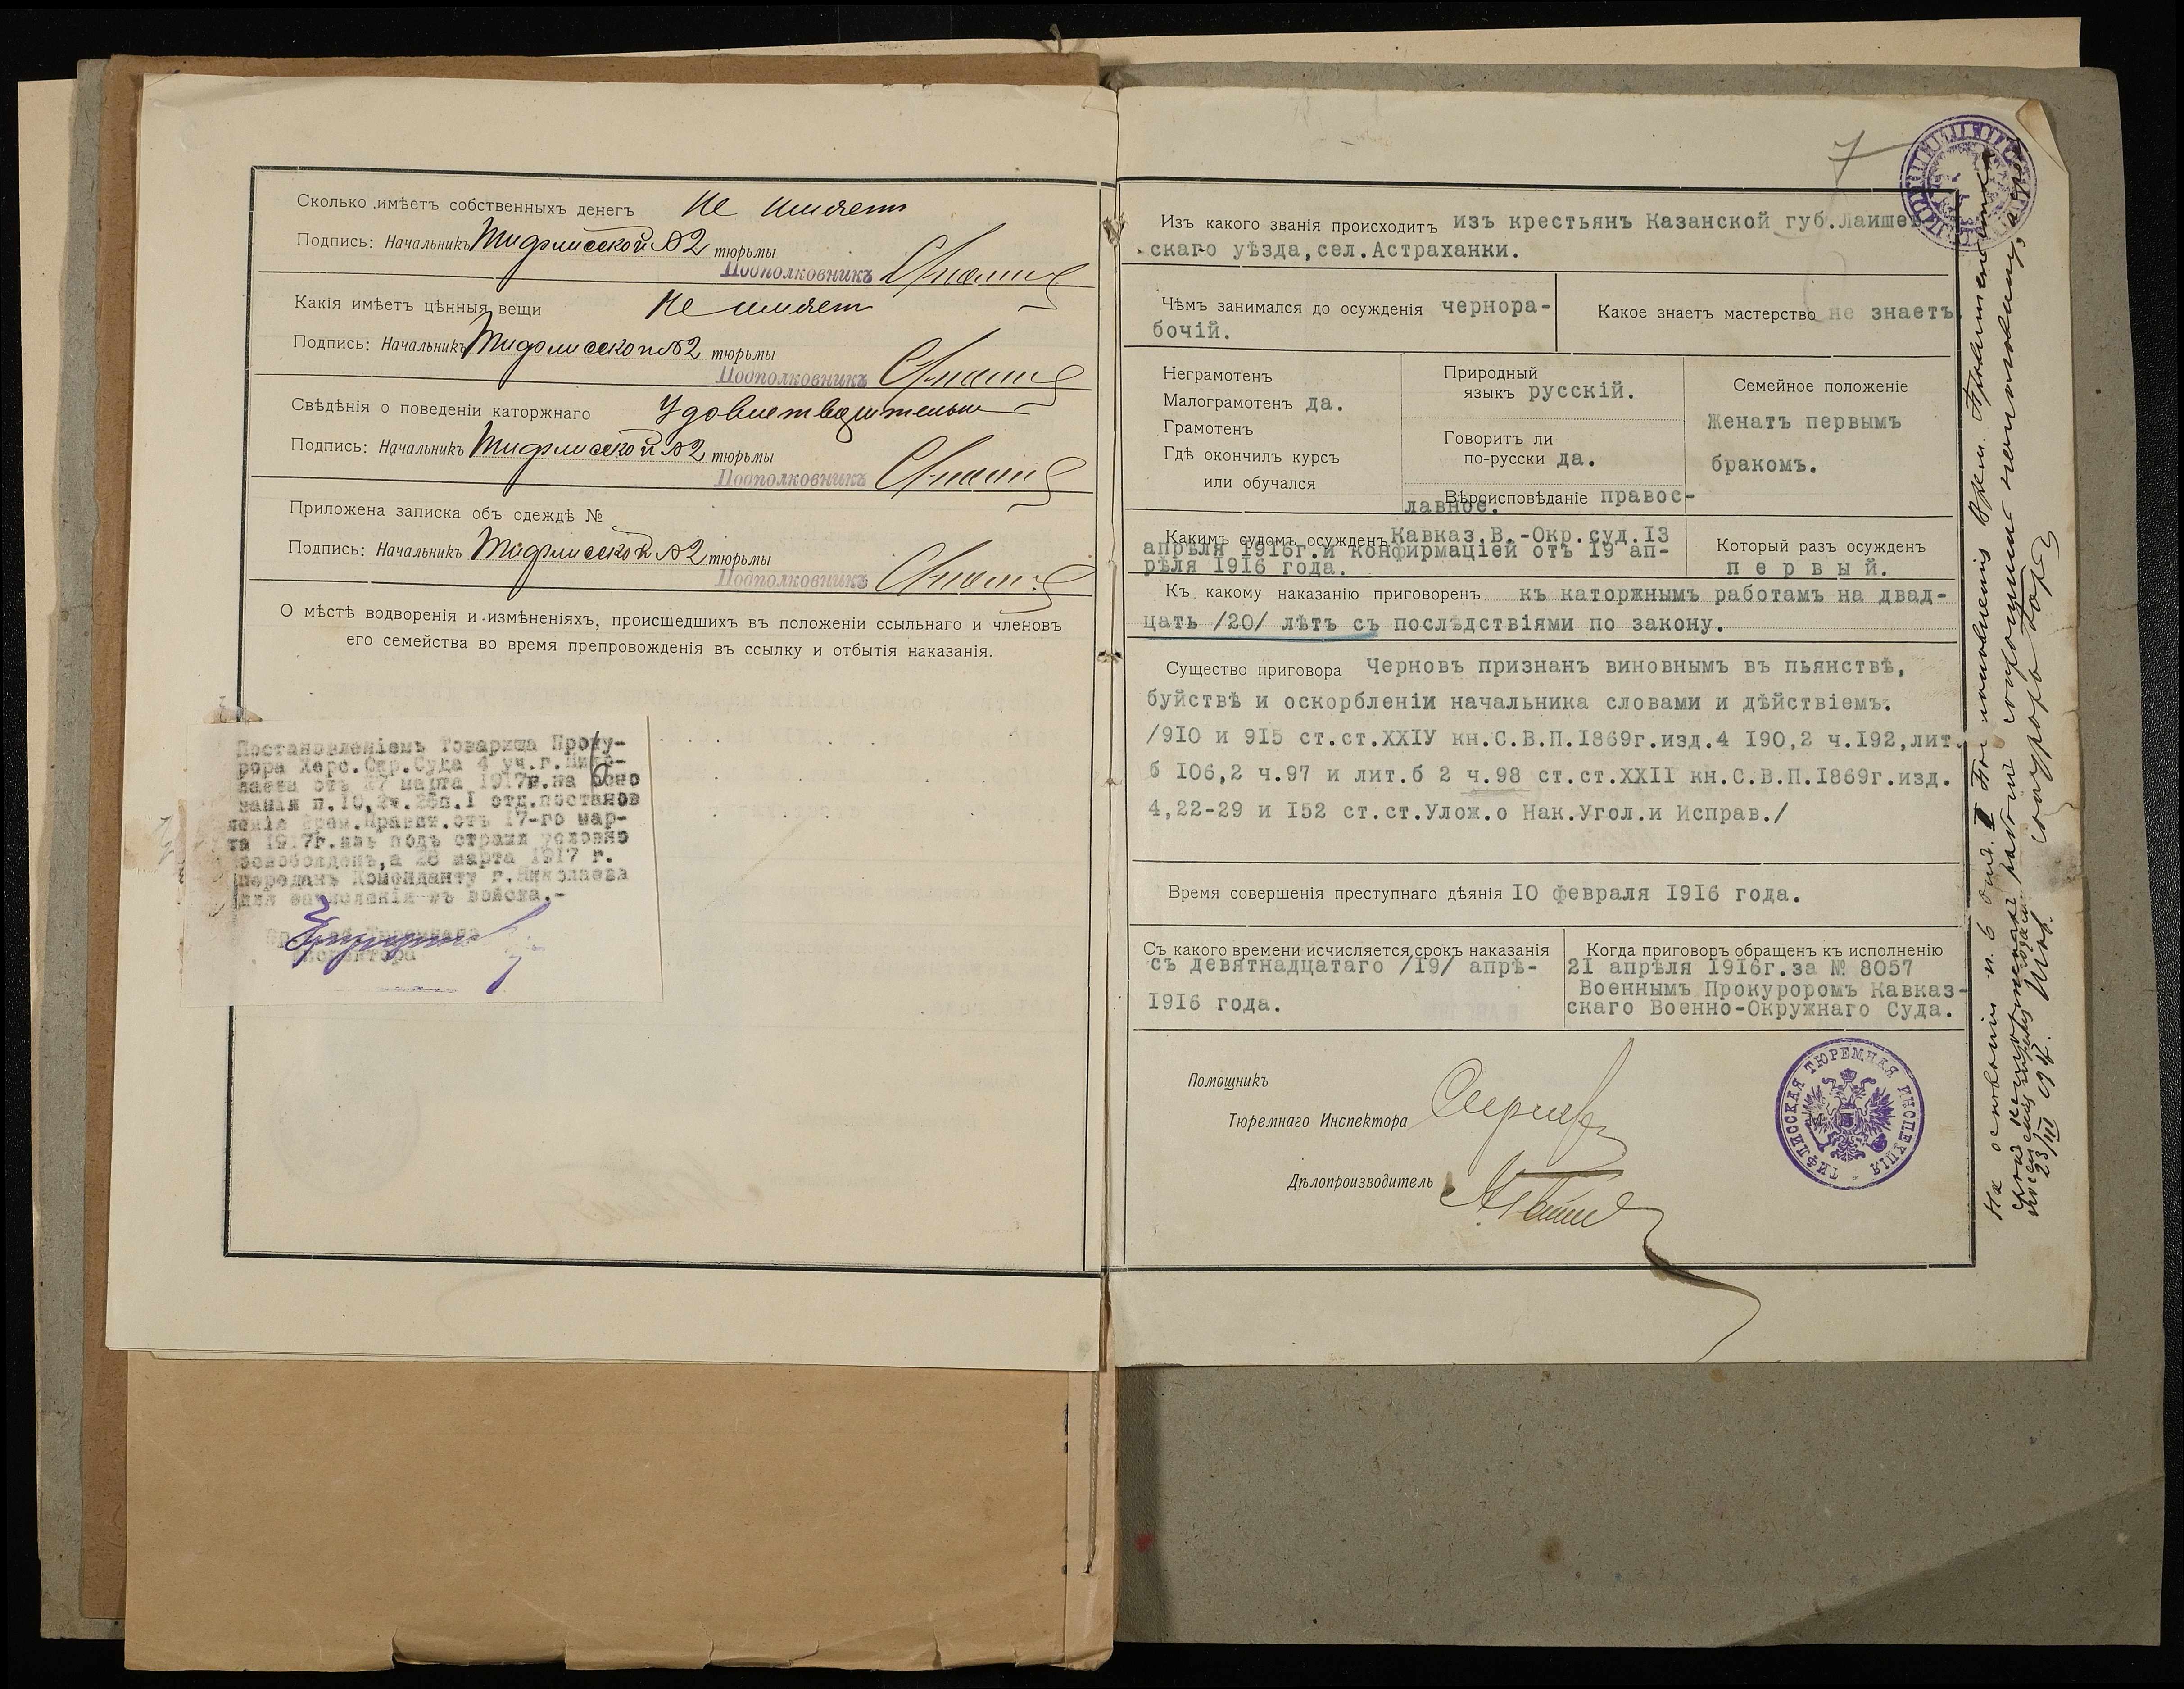 Сколько имѣетъ собственныхъ денегъ Не имѣетъ
Подпись: Начальникъ Тифлисской №2 тюрьмы
Подполковникъ
Какія имѣетъ цѣнныя вещи Не имѣетъ
Подпись: Начальникъ Тифлисской №2 тюрьмы
Подполковникъ
Свѣдѣнія о поведеніи каторжнаго Удовлетворительно
Подпись: Начальникъ Тифлисской №2 тюрьмы
Подполковникъ
Приложена записка объ одеждѣ №
Подпись: Начальникъ Тифлисской №2 тюрьмы
Подполковникъ
О мѣстѣ водворенія и измѣненіяхъ, происшедшихъ въ положеніи ссыльнаго и членовъ
его семейства во время препровожденія въ ссылку и отбытія наказанія.
Постановленіемъ Товарища Проку-
рора Херс.Окр.Суда 4 уч.г.Нико-
лаева отъ 27 марта 1917г.на осно
ванія п.10,2ч.26п.I отд.постанов
ленія Врем.Правит.отъ 17-го мар-
та 1917г.изъ подъ стражи условно
освобожденъ,а 28 марта 1917 г.
переданъ Коменданту г.Николаева
для зачисленія въ войска.-
7
Изъ какого званія происходитъ изъ крестьянъ Казанской губ.Лаише
скаго уѣзда,сел.Астраханки.
Чѣмъ занимался до осужденія чернора-
бочій.
Какое знаетъ мастерство не знаетъ.
Неграмотенъ
Малограмотенъ да.
Грамотенъ
Гдѣ окончилъ курсъ
или обучался
Природный
языкъ русскій.
Говоритъ ли
по-русски да.
Вѣроисповѣданіе правос-
лавное.
Семейное положеніе
Женатъ первымъ
бракомъ.
Какимъ судомъ осужденъ Кавказ.В.-Окр.суд.I3
апрѣля 1916г.и конфирмаціей отъ 19 ап-
рѣля 1916 года.
Который разъ осужденъ
п е р в ы й.
Къ какому наказанію приговоренъ къ каторжнымъ работамъ на двад-
цать /20/ лѣтъ съ послѣдствіями по закону.
Существо приговора Черновъ признанъ виновнымъ въ пьянствѣ,
буйствѣ и оскорбленіи начальника словами и дѣйствіемъ.
/9I0 и 9I5 ст.ст.XXIУ кн.С.В.П.I869г.изд.4 I90,2 ч.I92,лит.
б I06,2 ч.97 и лит.б 2 ч.98 ст.ст.XXII кн.С.В.П.I869г.изд.
4,22-29 и I52 ст.ст.Улож.о Нак.Угол.и Исправ./
Время совершенія преступнаго дѣянія I0 февраля I9I6 года.
Съ какого времени исчисляется срокъ наказанія
съ девятнадцатаго /I9/ апрѣ-
I9I6 года.
Когда приговоръ обращенъ къ исполненію
2I апрѣля I9I6г.за № 8057
Военнымъ Прокуроромъ Кавказ-
скаго Военно-Окружнаго Суда.
Помощникъ
Тюремнаго Инспектора
Дѣлопроизводитель
ТИФЛИССКАЯ ТЮРЕМНАЯ ИНСПЕКЦІЯ
На основаніи п. 6 отд. I Врем. Правительства
срокъ каторжныхъ работъ